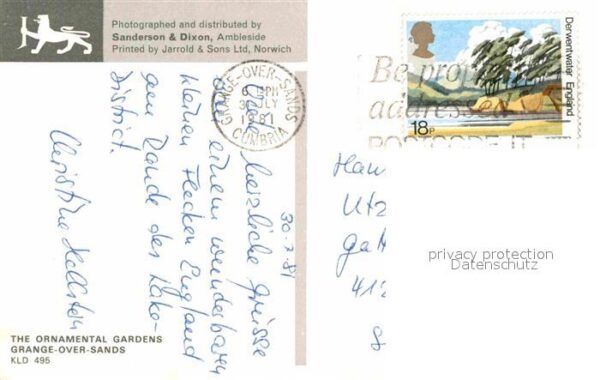 Photographed and distributed by
Sanderson & Dixon, Ambleside
Printed by Jarrold & Sons Ltd, Norwich
Derwentwater England
18p
GRANGE-OVER-SANDS
6 PM
JLY
1981
CUMBRIA
Be properly
addressed
POSTCODE IT
30.7.81
herzliche Grüsse
aus einem wunderbaren
kleinen Flecken England
am Rande des Lake-
District.
Christine Hellstein
Han
Utz
Gatt
412
privacy protection
Datenschutz
THE ORNAMENTAL GARDENS
GRANGE-OVER-SANDS
KLD 495